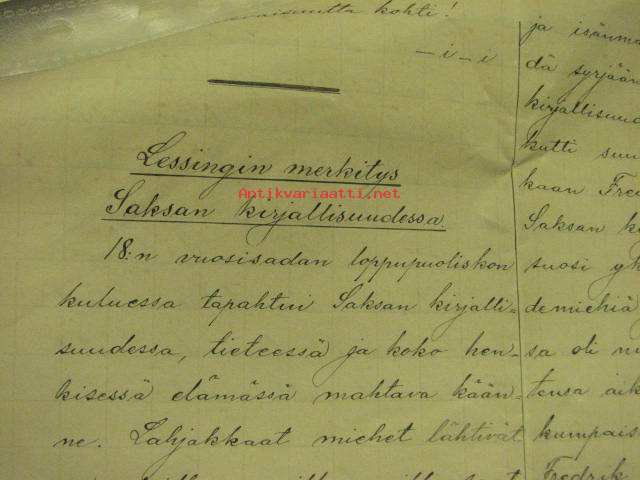 kohti!
—i—i
Lessingin merkitys
Antikvariaatti.net
Saksan kirjallisuudessa.
18:n vuosisadan loppupuoliskon
kuluessa tapahtui Saksan kirjalli-
suudessa, tieteessä ja koko hen-
kisessä elämässä mahtava kään-
ne. Lahjakkaat miehet lähtivät
ja isänma
dä syrjään
kirjallisuud
kutti suu
kaan Fred
Saksan ki
suosi yk
demiehiä
sa oli m
tensa aik
kumpais
Fredrik